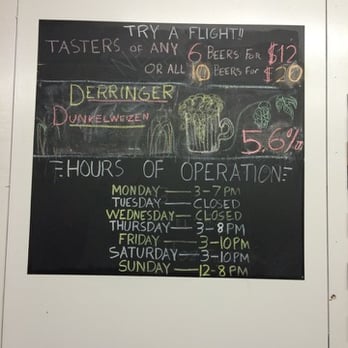 TRY A FLIGHT!!
TASTERS OF ANY 6 BEERS FOR $12
OR ALL 10 BEERS FOR $20
DERRINGER
DUNKELWEIZEN
5.6%
HOURS OF OPERATION
MONDAY — 3-7PM
TUESDAY — CLOSED
WEDNESDAY — CLOSED
THURSDAY — 3-8PM
FRIDAY — 3-10PM
SATURDAY — 3-10PM
SUNDAY — 12-8PM